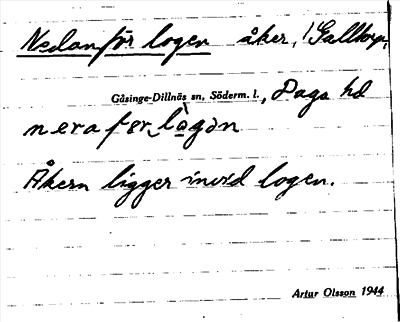 Nedanför logen åker, Galltorp,
Gåsinge-Dillnäs sn, Söderm. l., Daga hd
neraför lògan
Åkern ligger invid logen.
Artur Olsson 1944